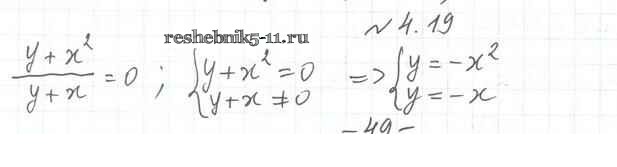 № 4.19
reshebnik5-11.ru
(y + x²)/(y + x) = 0 ; { y + x² = 0 ; y + x ≠ 0 => { y = -x² ; y = -x
- 49 -